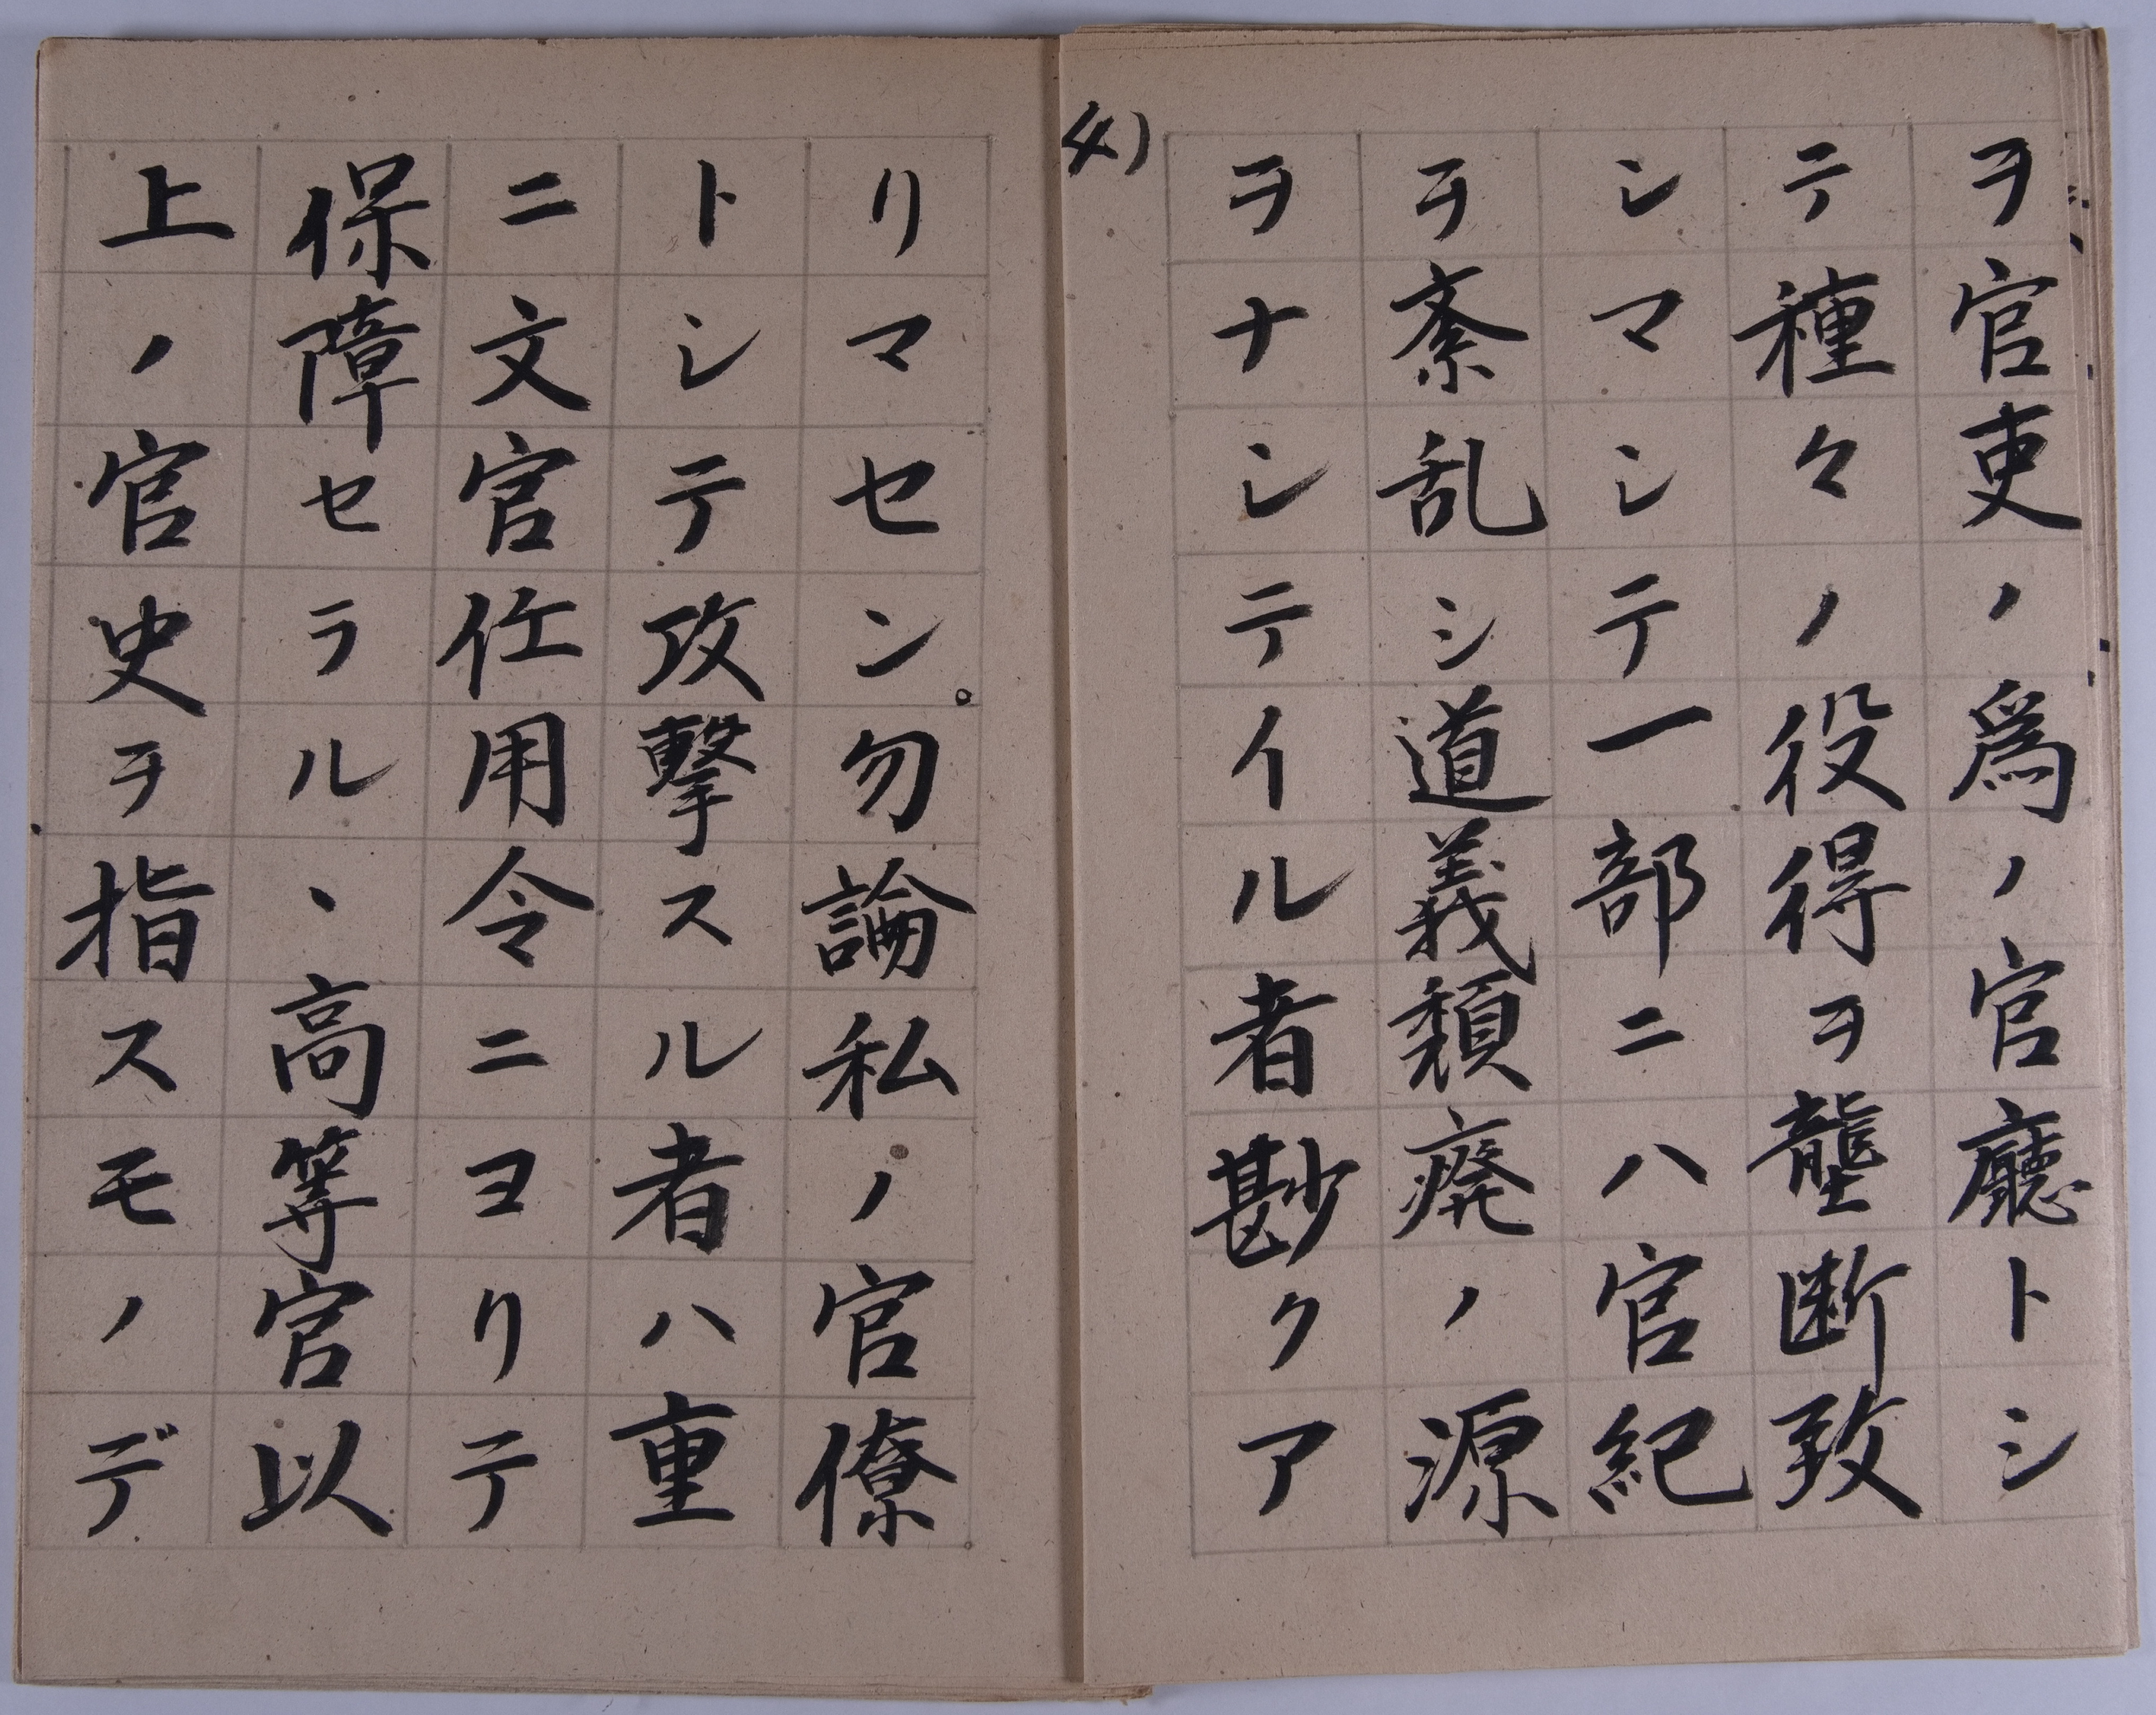 ヲ官吏ノ為ノ官廳トシ
テ種々ノ役得ヲ壟断致
シマシテ一部ニハ官紀
ヲ紊乱シ道義頽廃ノ源
ヲナシテイル者尠クア
4)
リマセン。勿論私ノ官僚
トシテ攻撃スル者ハ重
ニ文官任用令ニヨリテ
保障セラル、高等官以
上ノ官史ヲ指スモノデ